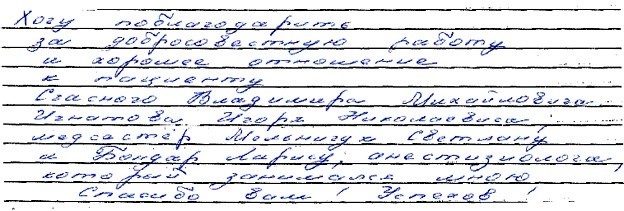 Хочу поблагодарить
за добросовестную работу
и хорошее отношение
к пациенту
Спасного Владимира Михайловича
Игнатова Игоря Николаевича,
медсестёр Мельничук Светлану
и Бондар Ларису, анестизиолога,
который занимался мною
Спасибо вам! Успехов!